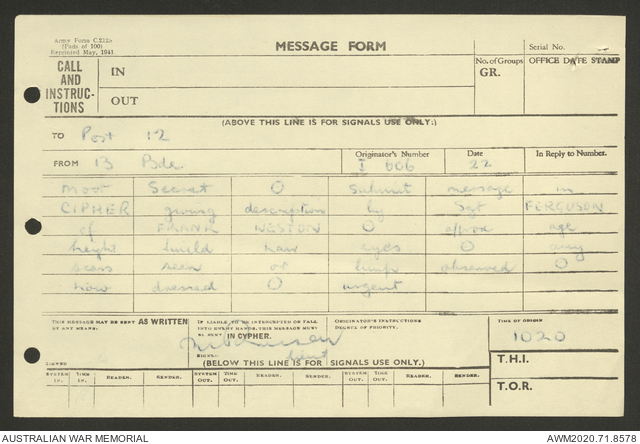 Army Form C2128
(Pads of 100)
Reprinted May, 1941.
MESSAGE FORM
Serial No.
CALL AND INSTRUC-TIONS
IN
OUT
No. of Groups
GR.
OFFICE DATE STAMP
(ABOVE THIS LINE IS FOR SIGNALS USE ONLY:)
TO Post 12
FROM 13 Bde
Originator's Number
I 606
Date
22
In Reply to Number.
Most Secret O submit message in
CIPHER giving description by Sgt FERGUSON
of FRANK WESTON O approx age
height build hair eyes O any
scars seen or limp observed O
how dressed O urgent
THIS MESSAGE MAY BE SENT AS WRITTEN
BY ANY MEANS.
IF LIABLE TO BE INTERCEPTED OR FALL
INTO ENEMY HANDS, THIS MESSAGE MUST
BE SENT IN CIPHER.
ORIGINATOR'S INSTRUCTIONS
DEGREE OF PRIORITY.
TIME OF ORIGIN
1020
SIGNED
SIGNED
Lieut
(BELOW THIS LINE IS FOR SIGNALS USE ONLY.)
T.H.I.
T.O.R.
SYSTEM IN. TIME IN. READER. SENDER. SYSTEM OUT. TIME OUT. READER. SENDER. SYSTEM OUT. TIME OUT. READER. SENDER.
AUSTRALIAN WAR MEMORIAL
AWM2020.71.8578